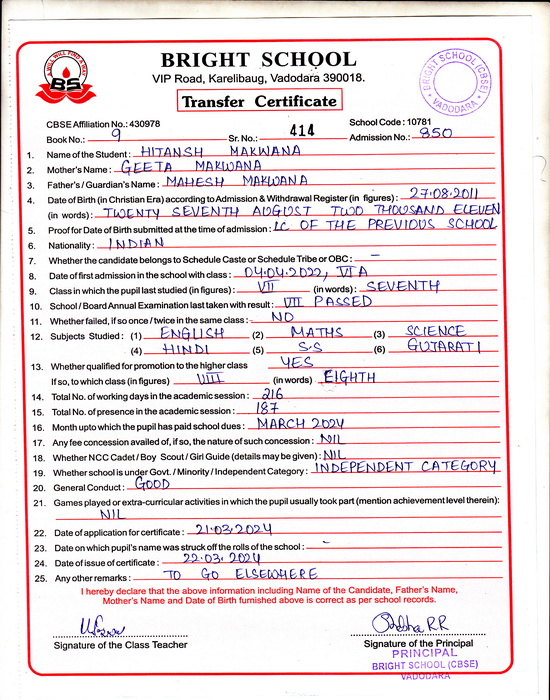 A WILL WILL FIND A WAY
BS
BRIGHT SCHOOL
VIP Road, Karelibaug, Vadodara 390018.
BRIGHT SCHOOL (CBSE)
VADODARA
Transfer Certificate
CBSE Affiliation No.: 430978 School Code : 10781
Book No.: 9 Sr. No.: 414 Admission No.: 850
1. Name of the Student : HITANSH MAKWANA
2. Mother's Name : GEETA MAKWANA
3. Father's / Guardian's Name : MAHESH MAKWANA
4. Date of Birth (in Christian Era) according to Admission & Withdrawal Register (in figures) : 27.08.2011
(in words) : TWENTY SEVENTH AUGUST TWO THOUSAND ELEVEN
5. Proof for Date of Birth submitted at the time of admission : LC OF THE PREVIOUS SCHOOL
6. Nationality : INDIAN
7. Whether the candidate belongs to Schedule Caste or Schedule Tribe or OBC : –
8. Date of first admission in the school with class : 04.04.2022, VI A
9. Class in which the pupil last studied (in figures) : VII (in words) : SEVENTH
10. School / Board Annual Examination last taken with result : VII PASSED
11. Whether failed, if so once / twice in the same class : NO
12. Subjects Studied : (1) ENGLISH (2) MATHS (3) SCIENCE
(4) HINDI (5) S.S (6) GUJARATI
13. Whether qualified for promotion to the higher class YES
If so, to which class (in figures) VIII (in words) EIGHTH
14. Total No. of working days in the academic session : 216
15. Total No. of presence in the academic session : 187
16. Month upto which the pupil has paid school dues : MARCH 2024
17. Any fee concession availed of, if so, the nature of such concession : NIL
18. Whether NCC Cadet / Boy Scout / Girl Guide (details may be given) : NIL
19. Whether school is under Govt. / Minority / Independent Category : INDEPENDENT CATEGORY
20. General Conduct : GOOD
21. Games played or extra-curricular activities in which the pupil usually took part (mention achievement level therein):
NIL
22. Date of application for certificate : 21.03.2024
23. Date on which pupil's name was struck off the rolls of the school : –
24. Date of issue of certificate : 22.03.2024
25. Any other remarks : TO GO ELSEWHERE
I hereby declare that the above information including Name of the Candidate, Father's Name,
Mother's Name and Date of Birth furnished above is correct as per school records.
Signature of the Class Teacher
Signature of the Principal
PRINCIPAL
BRIGHT SCHOOL (CBSE)
VADODARA